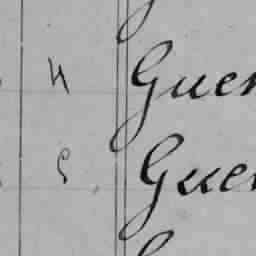 4 Guer
5 Guer